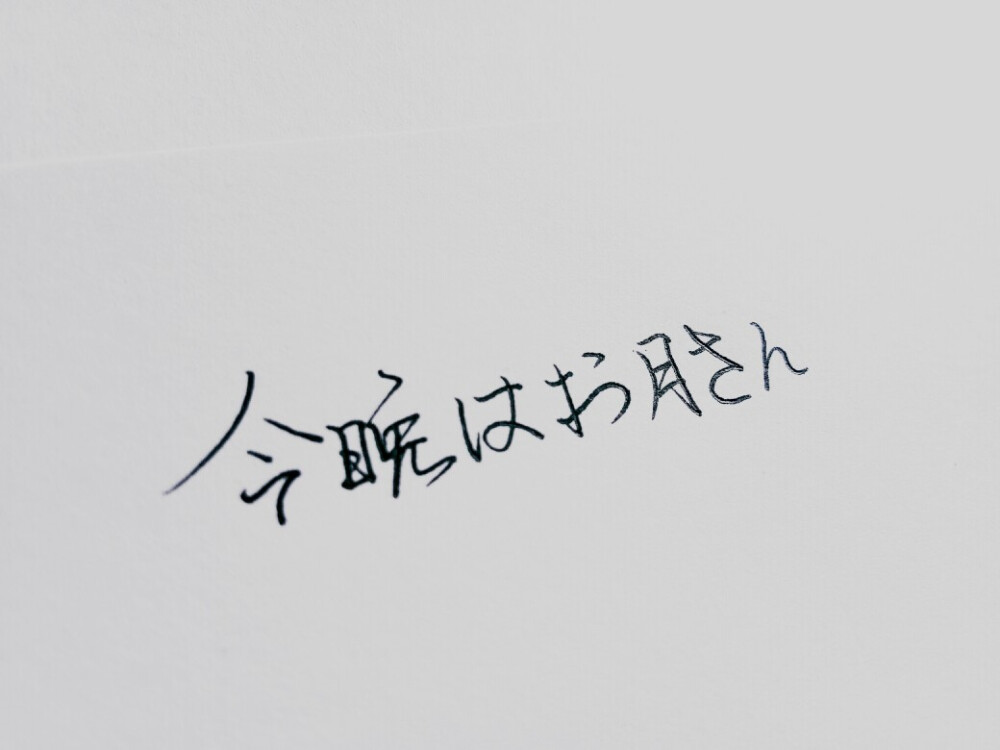 今晩はお月さん